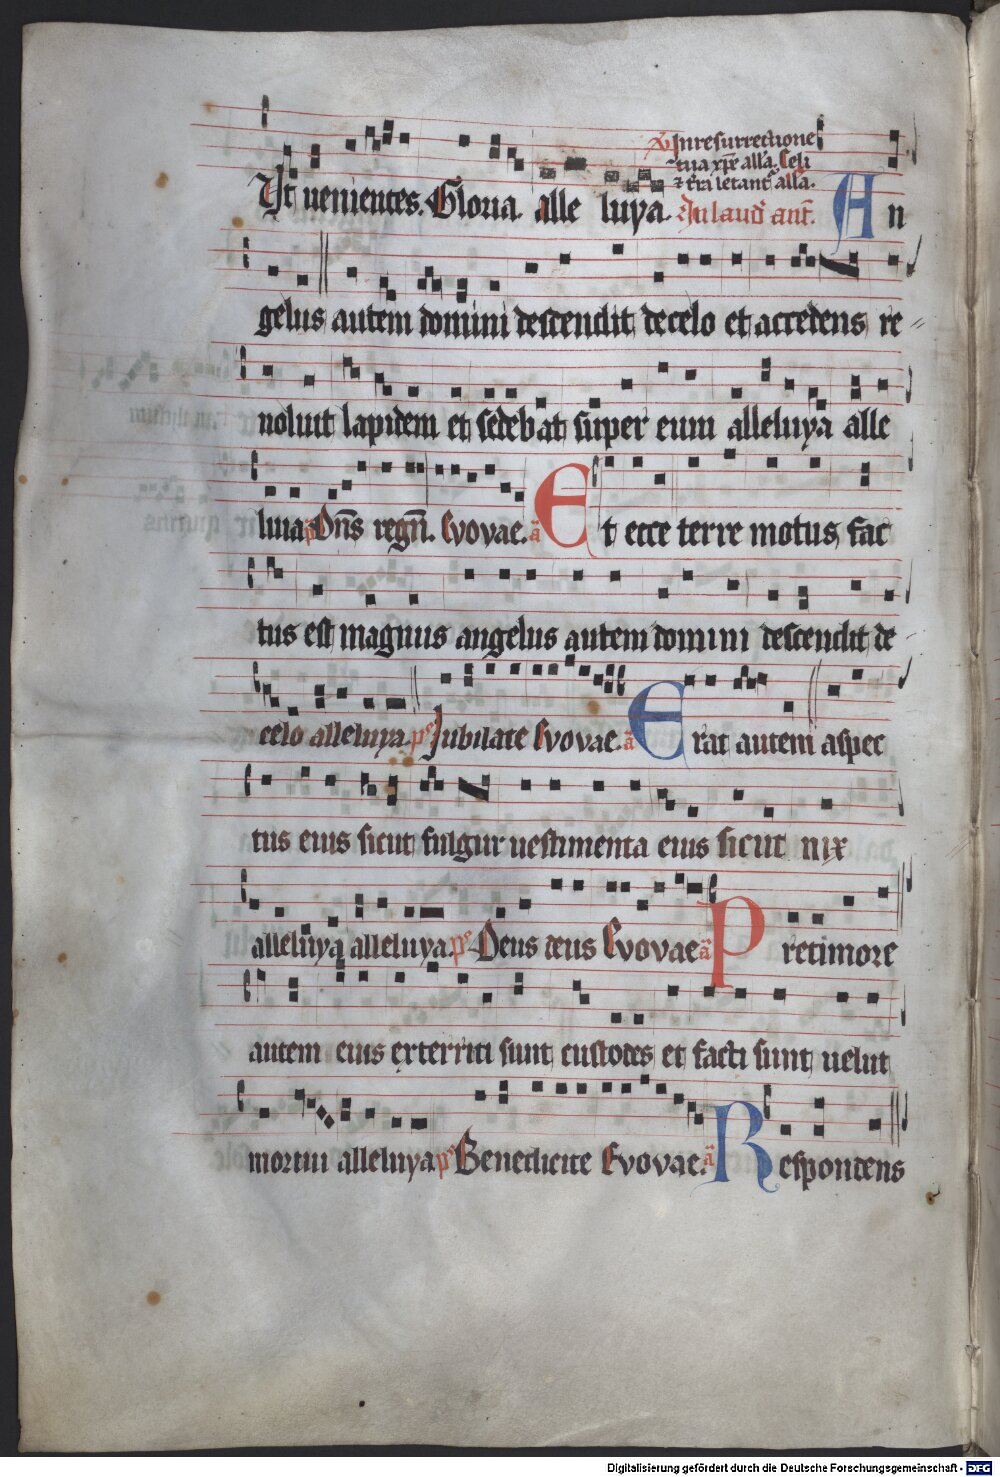 Inresurrectione
tua xp̄e all'a. Celi
⁊ t'ra letant' all'a.
Ut uenientes. Gloria. alle luya. In laud' ant̄. An
gelus autem domini descendit decelo et accedens re
uoluit lapidem et sedebat super eum alleluya alle
luia. Dn̄s regn̄. Evovae. a Et ecce terre motus fac
tus est magnus angelus autem domini descendit de
celo alleluya. ps Iubilate Evovae. a Erat autem aspec
tus eius sicut fulgur uestimenta eius sicut nix
alleluya alleluya. ps Deus deus Evovae a Pretimore
autem eius exterriti sunt custodes et facti sunt uelut
mortui alleluya ps Benedicite Evovae. a Respondens
Digitalisierung gefördert durch die Deutsche Forschungsgemeinschaft - DFG